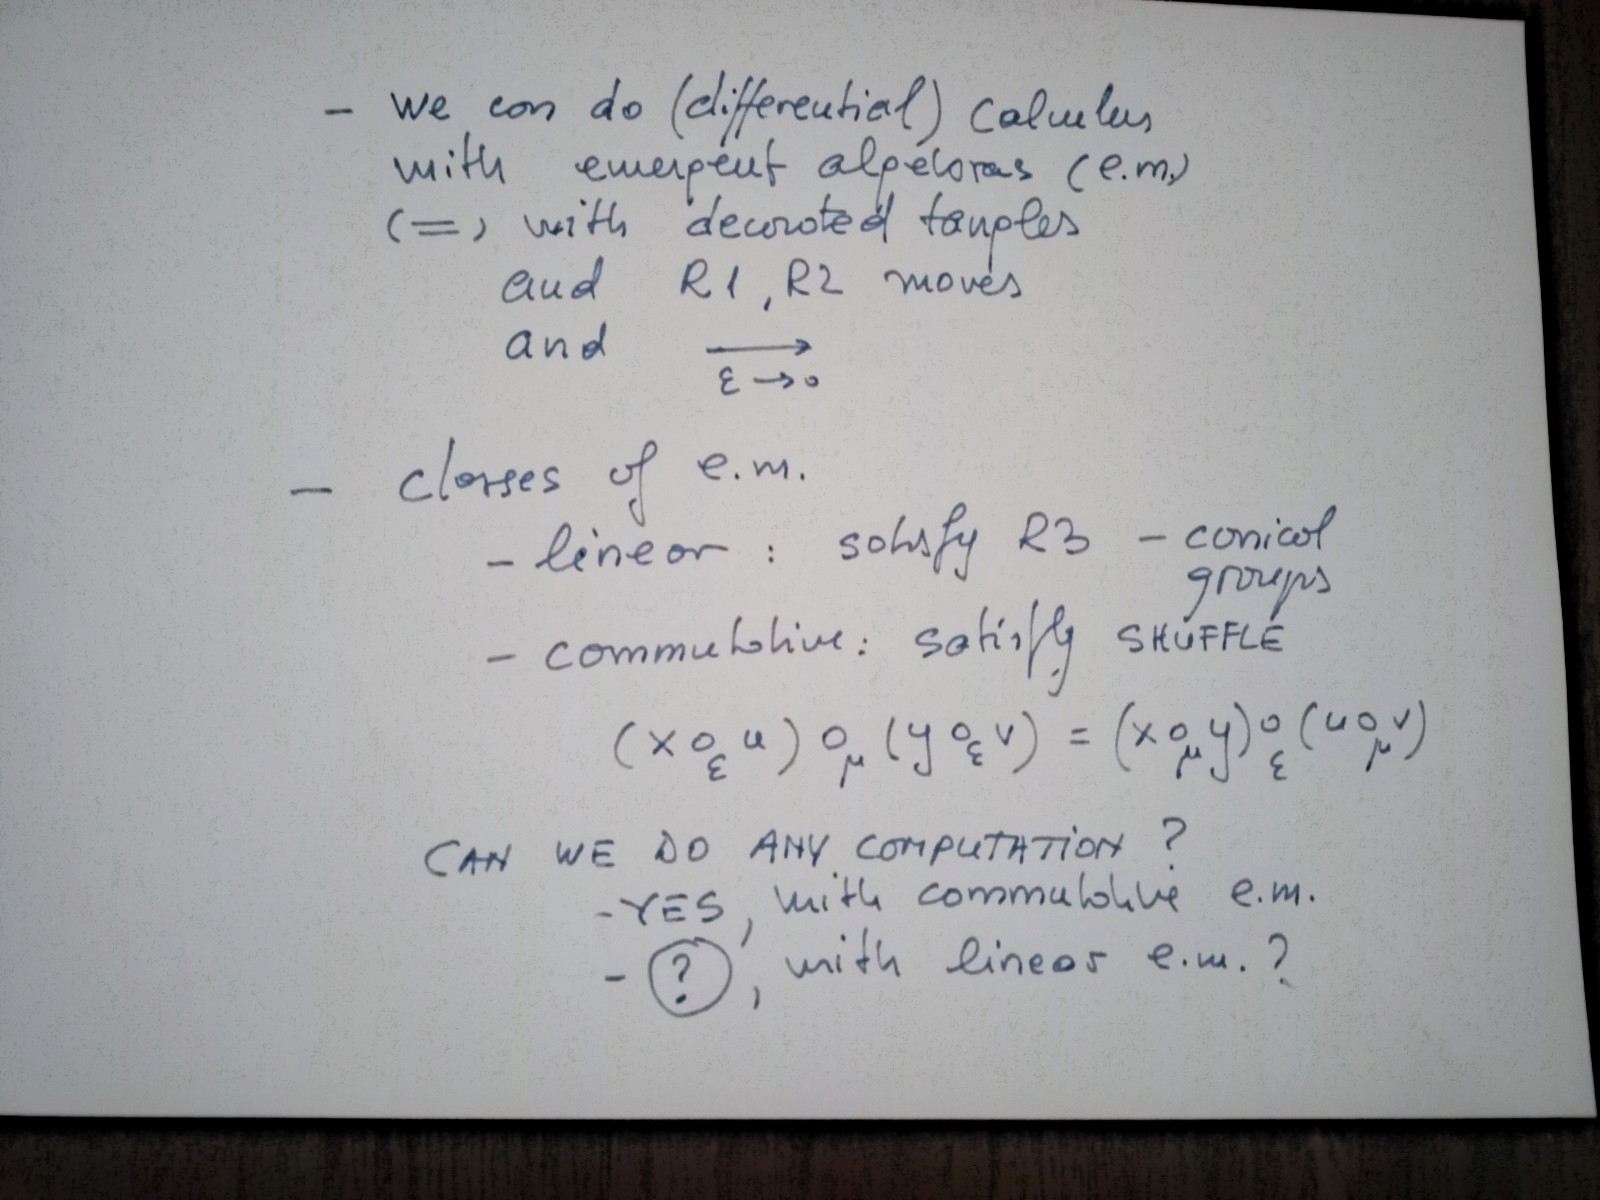 - we can do (differential) calculus
with emergent algebras (e.m.)
(=) with decorated tangles
and R1, R2 moves
and ⟶
ε → 0
- classes of e.m.
- linear : satisfy R3 - conical
groups
- commutative: satisfy SHUFFLE
(x ∘_ε u) ∘_μ (y ∘_ε v) = (x ∘_μ y) ∘_ε (u ∘_μ v)
CAN WE DO ANY COMPUTATION ?
- YES, with commutative e.m.
- ?, with linear e.m. ?